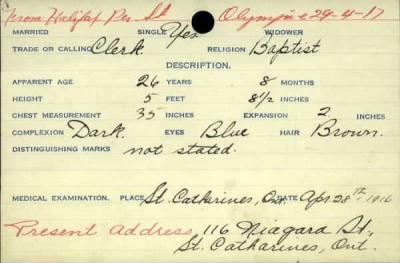 From Halifax Per S.S. Olympic 29-4-17
MARRIED SINGLE Yes. WIDOWER
TRADE OR CALLING Clerk. RELIGION Baptist
DESCRIPTION.
APPARENT AGE 26 YEARS 8 MONTHS
HEIGHT 5 FEET 8½ INCHES
CHEST MEASUREMENT 35 INCHES EXPANSION 2 INCHES
COMPLEXION Dark. EYES Blue HAIR Brown.
DISTINGUISHING MARKS not stated.
MEDICAL EXAMINATION. PLACE St. Catharines, Ont. DATE Apr 28th, 1916
Present Address 116 Niagara St.,
St. Catharines, Ont.